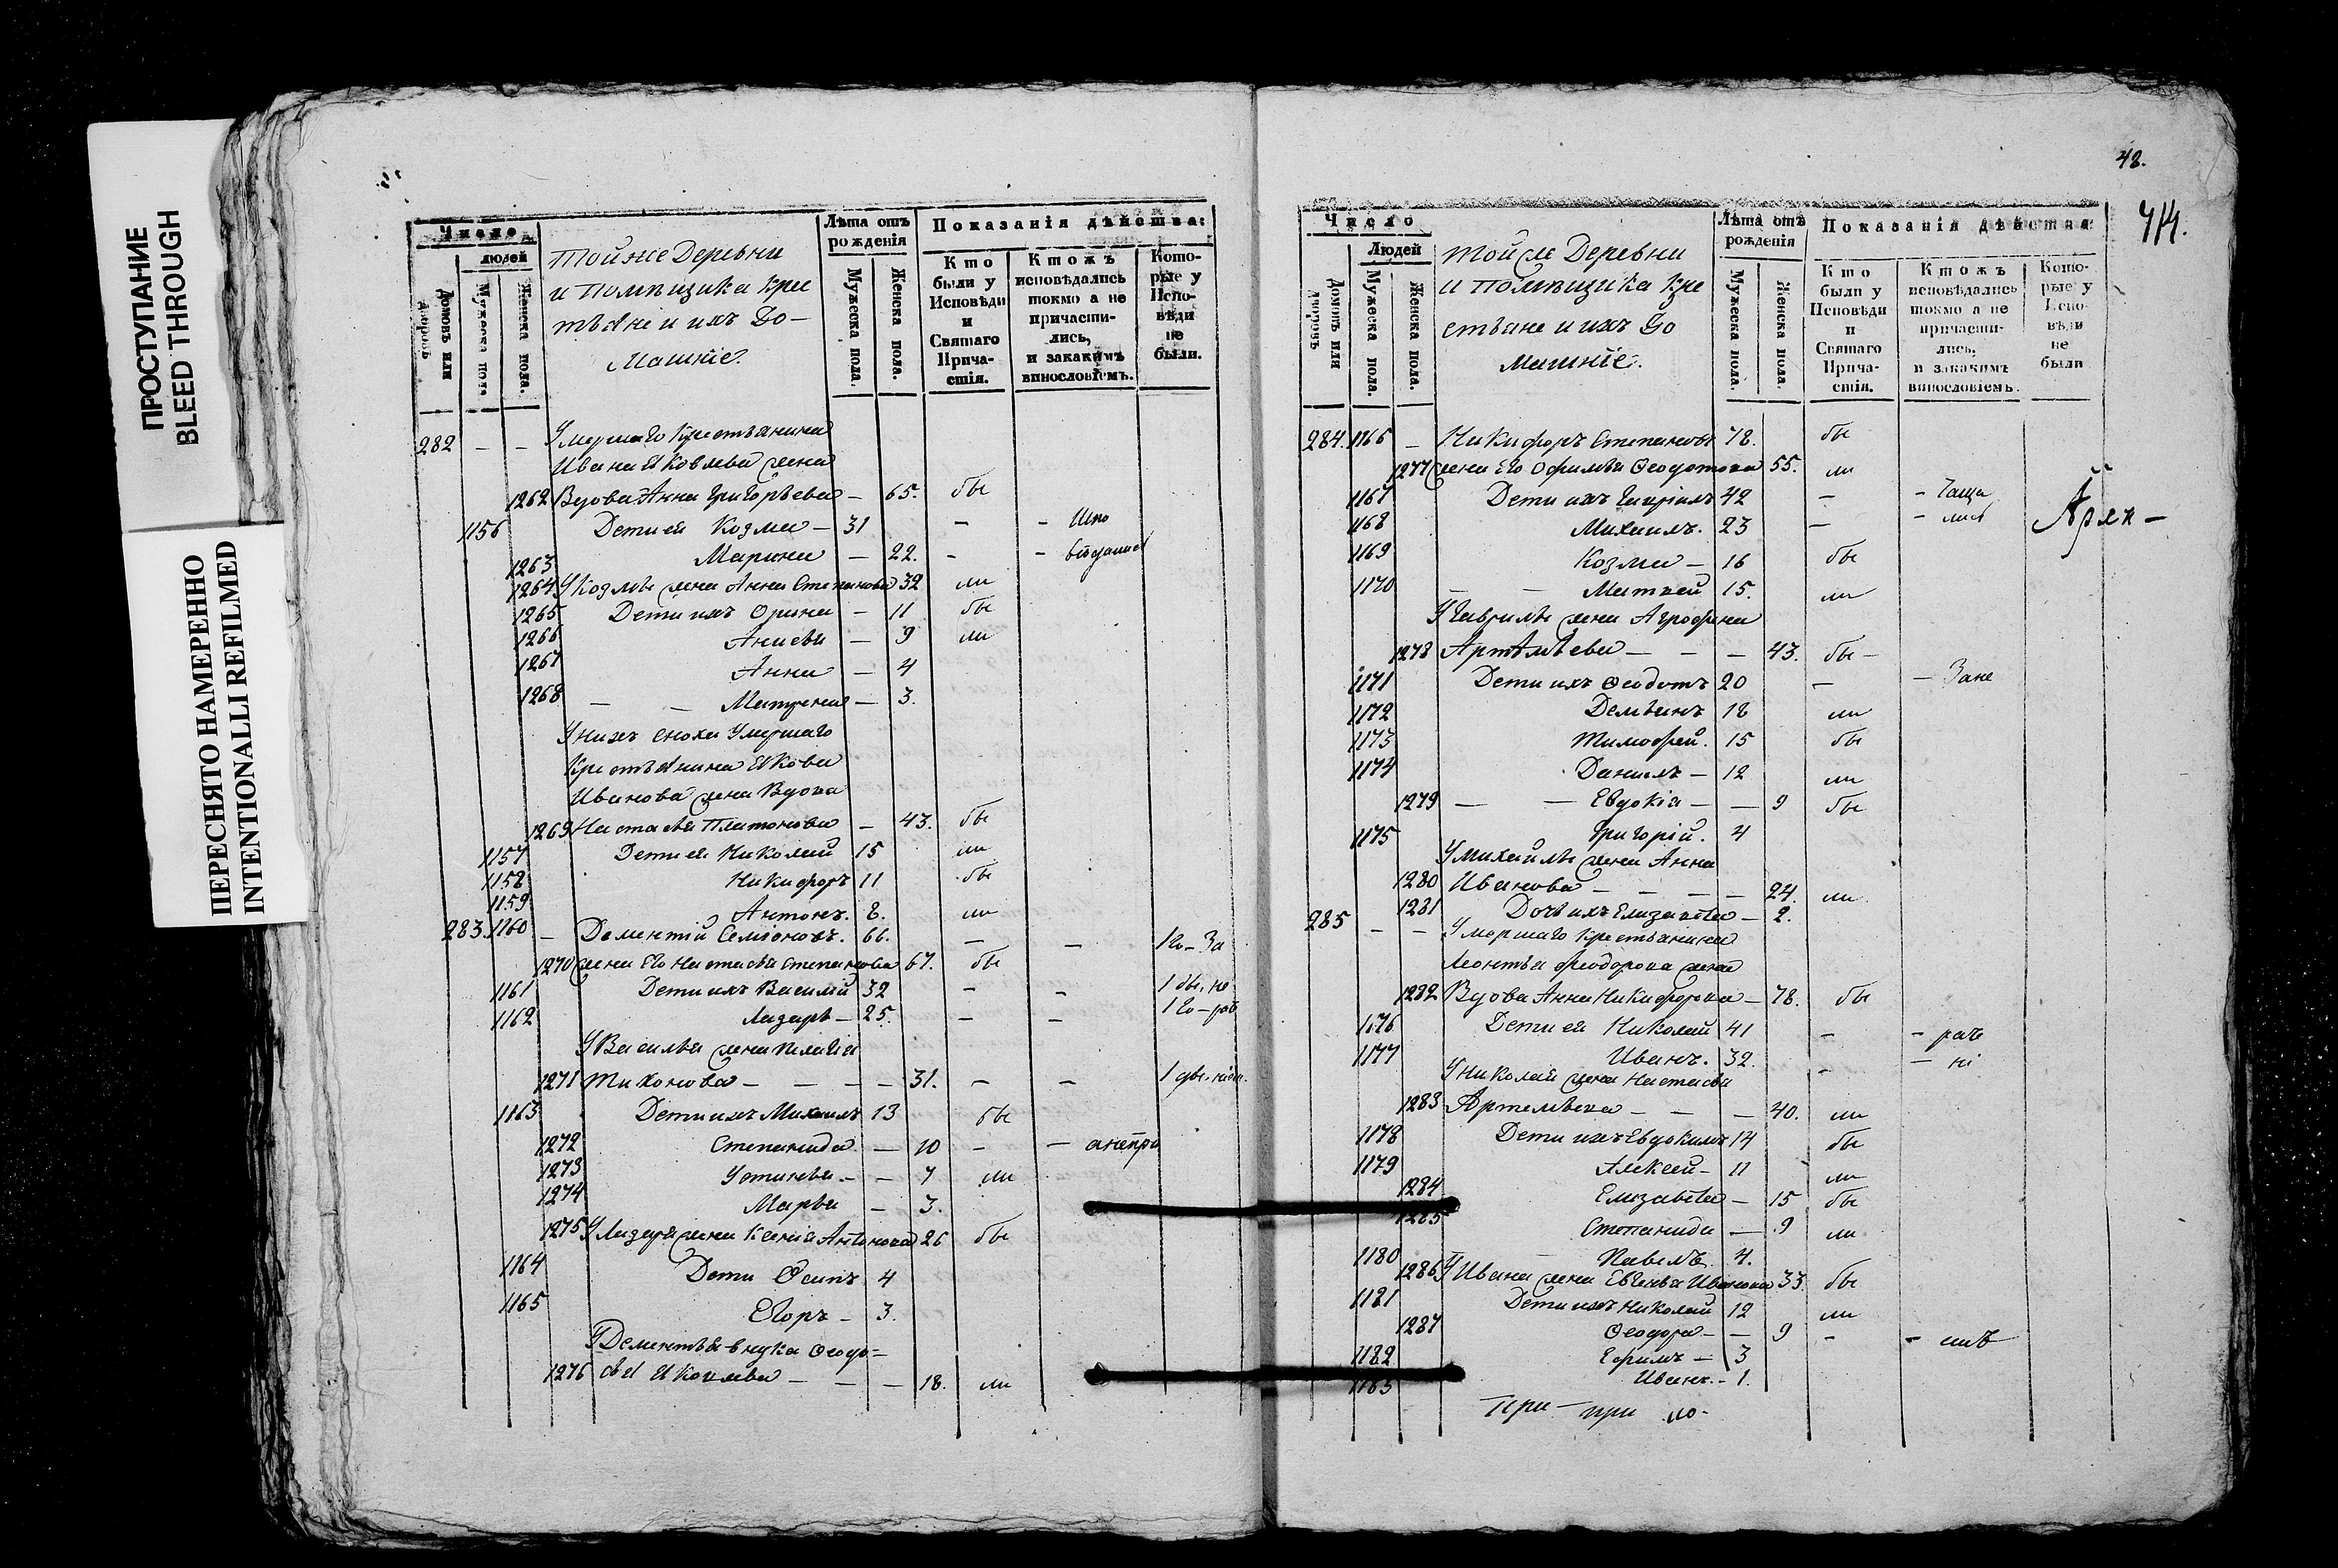 ПРОСТУПАНИЕ
BLEED THROUGH
ПЕРЕСНЯТО НАМЕРЕННО
INTENTIONALLI REFILMED
Число
людей
Домовъ или дворовъ
Мужеска пола.
Женска пола.
Тойже Деревни
и Помѣщика Крес
тьяне и ихъ До-
машніе.
Лѣта отъ рожденія
Мужеска пола.
Женска пола.
Показанія дѣйства:
Кто были у Исповѣди и Святаго Прича- стія.
Ктожъ исповѣдались токмо а не причасти- лись, и закакимъ винословіемъ.
Кото- рые у Испо- вѣди не были.
282 - - Умершаго Крестьянина
Ивана Яковлева жена
1262 Вдова Анна Григорьева - 65. бы
1156 Дети ея Козма - 31 - - Ипо
1263 Марина - 22. - -
1264 У Козмы жена Анна Степанова 32 ли
1265 Дети ихъ Орина - 11 бы
1266 Анисья - 9 ли
1267 Анна - 4
1268 - - Матрена - 3.
У нихъ сноха Умершаго
Крестьянина Якова
Иванова жена Вдова
1269 Настасья Платонова - 43. бы
1157 Дети ея Николай 15 ли
1158 Никифоръ 11 бы
1159 Антонъ. 8. ли
283. 1160 - Дементій Семіоновъ. 66. - - 1 го - За
1270 жена Его Настасья Степанова 67. бы
1161 Дети ихъ Василій 32 - - 1 бы. не
1162 Лазарь - 25. - - 1 го - роб
У Василья жена Пелагія
1271 Тихонова - - - - 31. - - 1
1163 Дети ихъ Михаилъ 13 бы
1272 Степанида. - 10 - - анепри
1273 Устинья - - 7 ли
1274 Марья - 3.
1275 У Лазаря жена Ксенія Антонова 26 бы
1164 Дети Осипъ 4
1165 Егоръ - 3.
У Дементья внука Ѳеодо-
1276 сья Яковлева - - - 18. ли
42.
714.
Число
Людей
Домовъ или дворовъ
Мужеска пола.
Женска пола.
Той же Деревни
и Помѣщика Кре
стьяне и ихъ До
машніе.
Лѣта отъ рожденія
Мужеска пола.
Женска пола.
Показанія дѣйства
Кто были у Исповѣди и Святаго Прича- стія.
Ктожъ исповѣдались токмо а не причасти- лись, и закакимъ винословіемъ.
Кото- рые у Испо- вѣди не были
284. 1166 - Никифоръ Степановъ 78. бы
1277 жена Его Офимья Ѳеодотова 55. ли
1167 Дети ихъ Гавріилъ 42 - -
1168 Михаилъ. 23 - -
1169 Козма - 16 бы
1170 - - Матвей 15. ли
У Гаврилы жена Агрофена
1278 Артемьева - - - 43. бы -
1171 Дети ихъ Ѳеодотъ 20 - - Зане
1172 Демьянъ 18 ли
1173 Тимофей. 15 бы
1174 Данилъ - 12 ли
1279 - - Евдокія - - 9 бы
1175 Григорій. 4
У Михаилы жена Анна
1280 Иванова - - - - 24. ли
1281 Дочь ихъ Елизавета - 2.
285 - - Умершаго Крестьянина
Леонтья Феодорова жена
1282 Вдова Анна Никифорова - 78. бы
1176 Дети ея Николай 41 - - рачъ
1177 Иванъ. 32. - - ні
У Николая жена Настасья
1283 Артемьева - - - 40. ли
1178 Дети ихъ Евдокимъ 14 бы
1179 Алексей - 11 ли
1284 Елизавета - 15 бы
1285 Степанида - 9 ли
1180 Павелъ 4.
1286 У Ивана жена Евгенья Иванова 33. бы
1181 Дети ихъ Николай 12 ли
1287 Ѳеодора - - 9 - -
1182 Ефимъ - 3
1183 Иванъ. - 1.